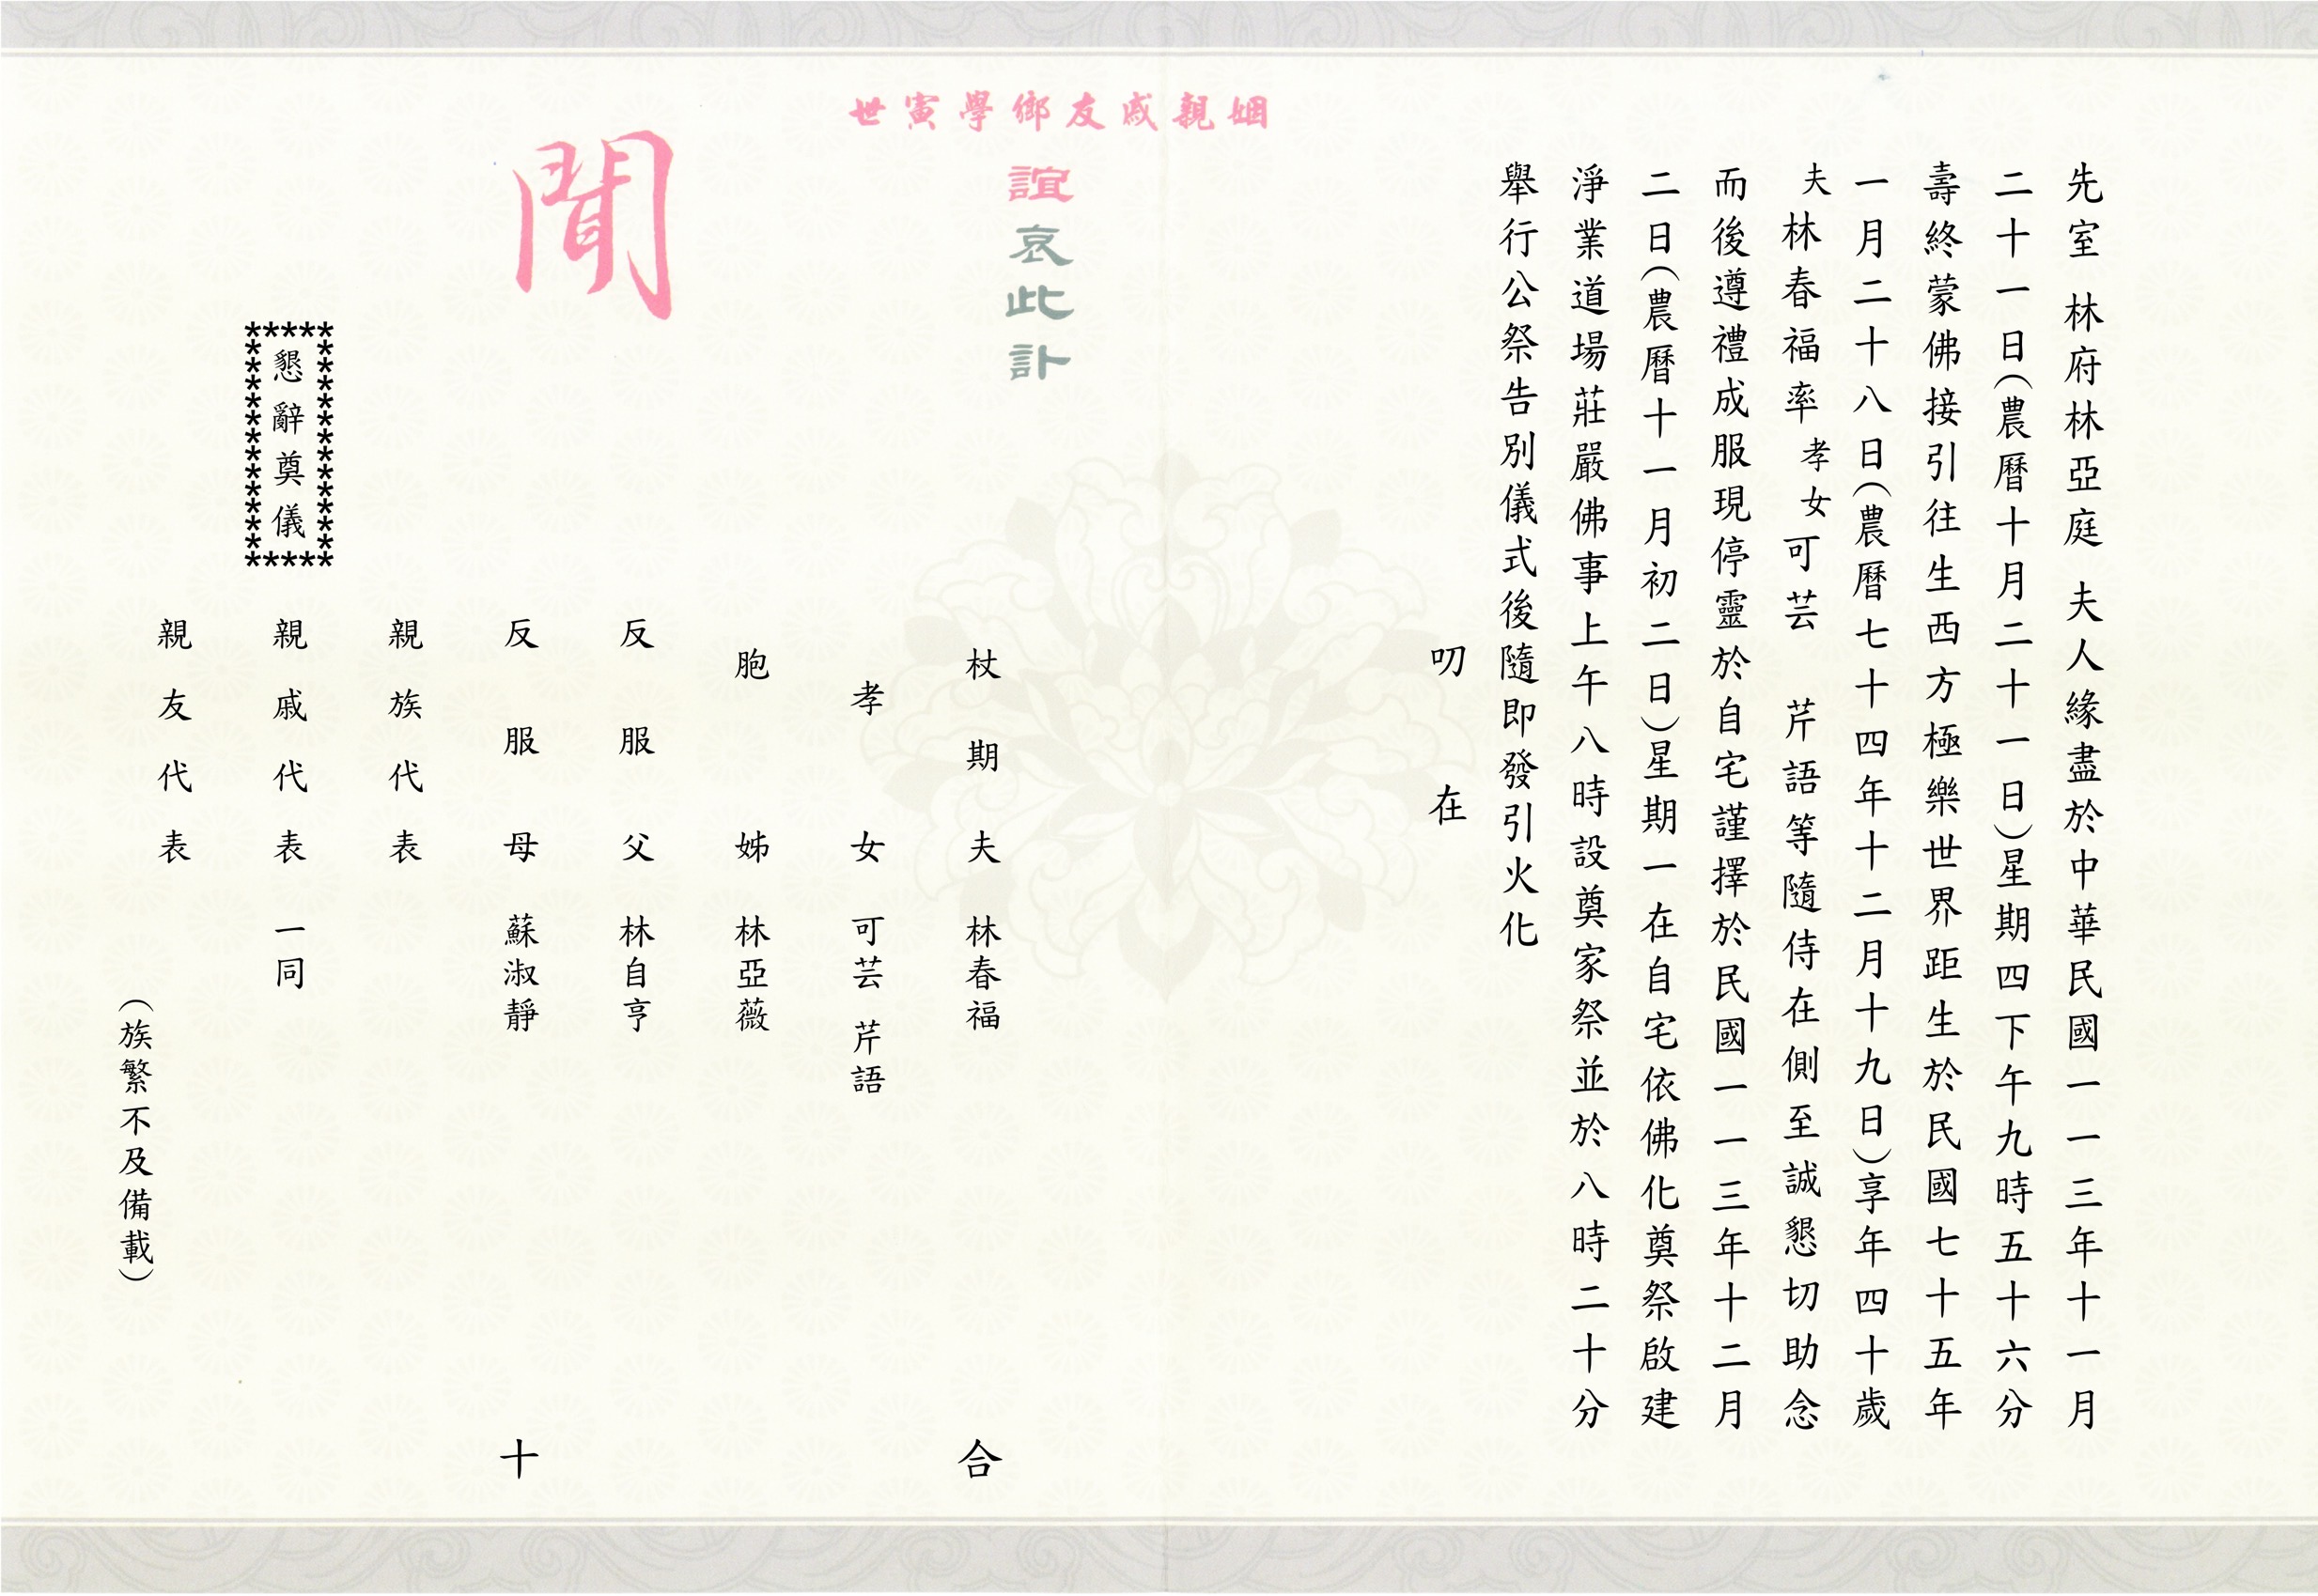 先室 林府林亞庭 夫人緣盡於中華民國一一三年十一月
二十一日(農曆十月二十一日)星期四下午九時五十六分
壽終蒙佛接引往生西方極樂世界距生於民國七十五年
一月二十八日(農曆七十四年十二月十九日)享年四十歲
夫林春福率 孝女可芸 芹語等隨侍在側至誠懇切助念
而後遵禮成服現停靈於自宅謹擇於民國一一三年十二月
二日(農曆十一月初二日)星期一在自宅依佛化奠祭啟建
淨業道場莊嚴佛事上午八時設奠家祭並於八時二十分
舉行公祭告別儀式後隨即發引火化
叨在
姻親戚友鄉學寅世
誼哀此訃
聞
杖期夫 林春福
孝女 可芸 芹語
胞姊 林亞薇
反服父 林自亨
反服母 蘇淑靜
親族代表
親戚代表 一同
親友代表
(族繁不及備載)
合
十
*****
懇辭奠儀
*****